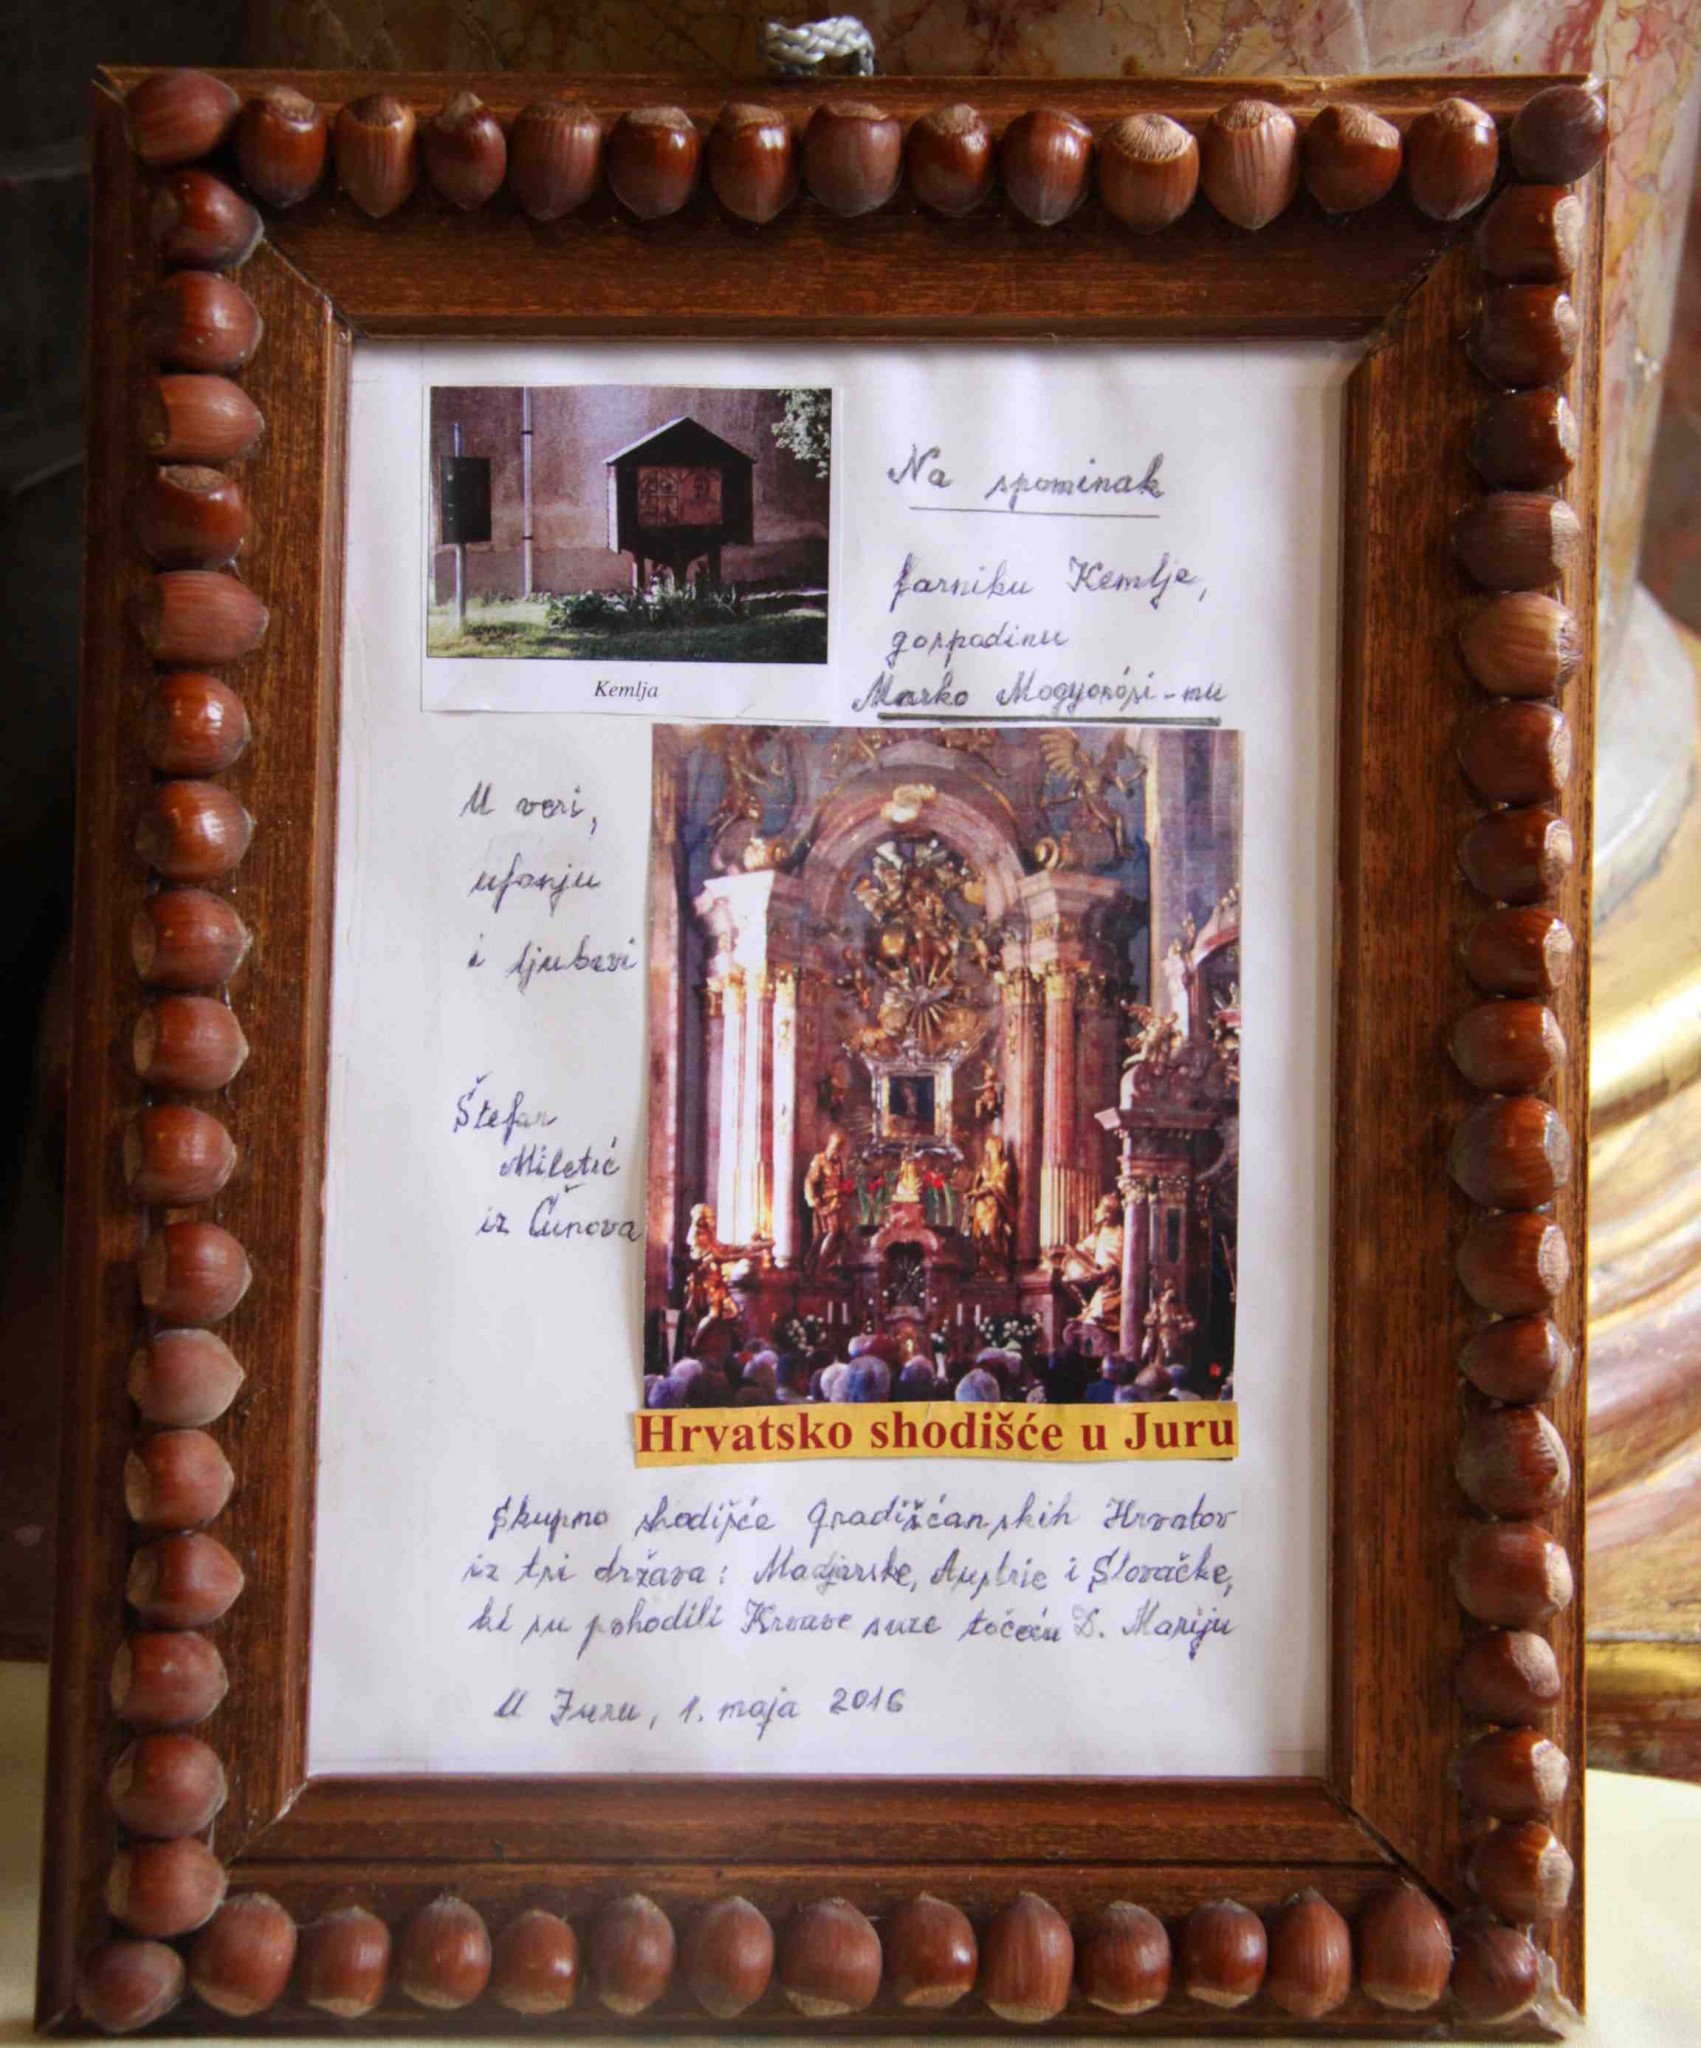 Kemlja
Na spominak
farniku Kemlje,
gospodinu
Marko Mogyorósi-mu
U veri,
ufanju
i ljubavi
Štefan
Miletić
iz Čunova
Hrvatsko shodišće u Juru
Skupno shodišće Gradišćanskih Hrvatov
iz tri država: Madjarske, Austrie i Slovačke,
ki su pohodili Krvave suze točeću D. Mariju
U Juru, 1. maja 2016